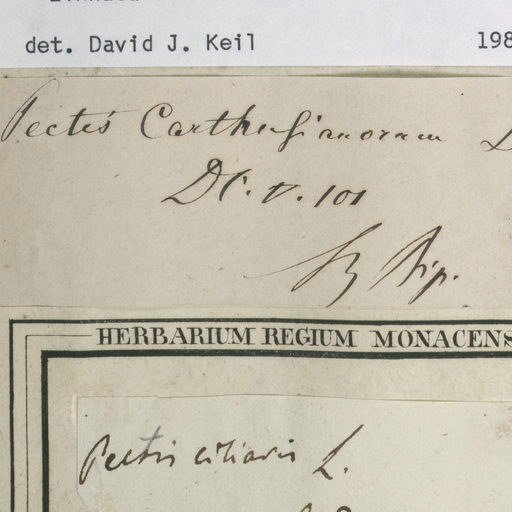 det. David J. Keil 198
Pectis Carthusianorum
DC. V. 101
Sz Bip.
HERBARIUM REGIUM MONACENS
Pectis ciliaris L.